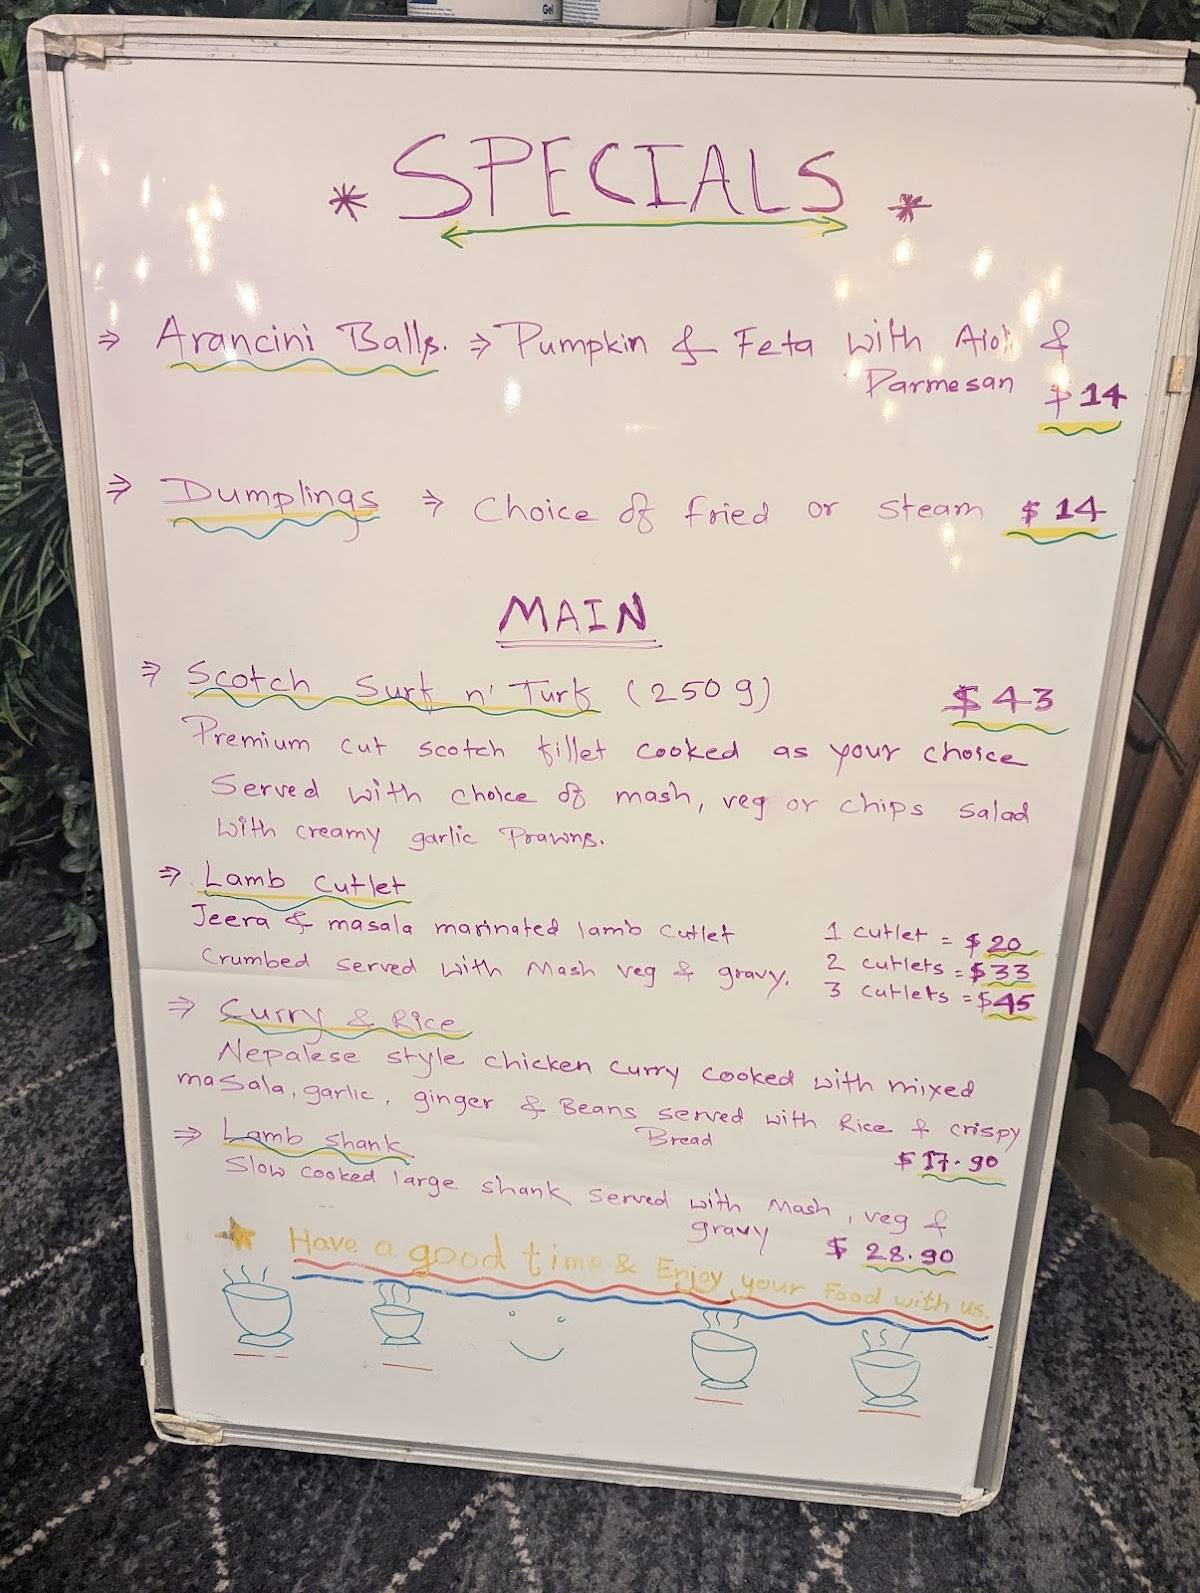 Gel
* SPECIALS *
⇒ Arancini Balls. ⇒ Pumpkin & Feta with Aioli &
Parmesan $14
⇒ Dumplings ⇒ Choice of fried or steam $14
MAIN
⇒ Scotch Surf n' Turf (250g) $43
Premium cut scotch fillet cooked as your choice
Served with choice of mash, veg or chips salad
with creamy garlic Prawns.
⇒ Lamb cutlet
Jeera & masala marinated lamb cutlet 1 cutlet = $20
Crumbed served with Mash veg & gravy. 2 cutlets = $33
3 cutlets = $45
⇒ Curry & Rice
Nepalese style chicken curry cooked with mixed
masala, garlic, ginger & Beans served with Rice & crispy
Bread $17.90
⇒ Lamb shank
Slow cooked large shank served with Mash, veg &
gravy $28.90
Have a good time & Enjoy your Food with us.